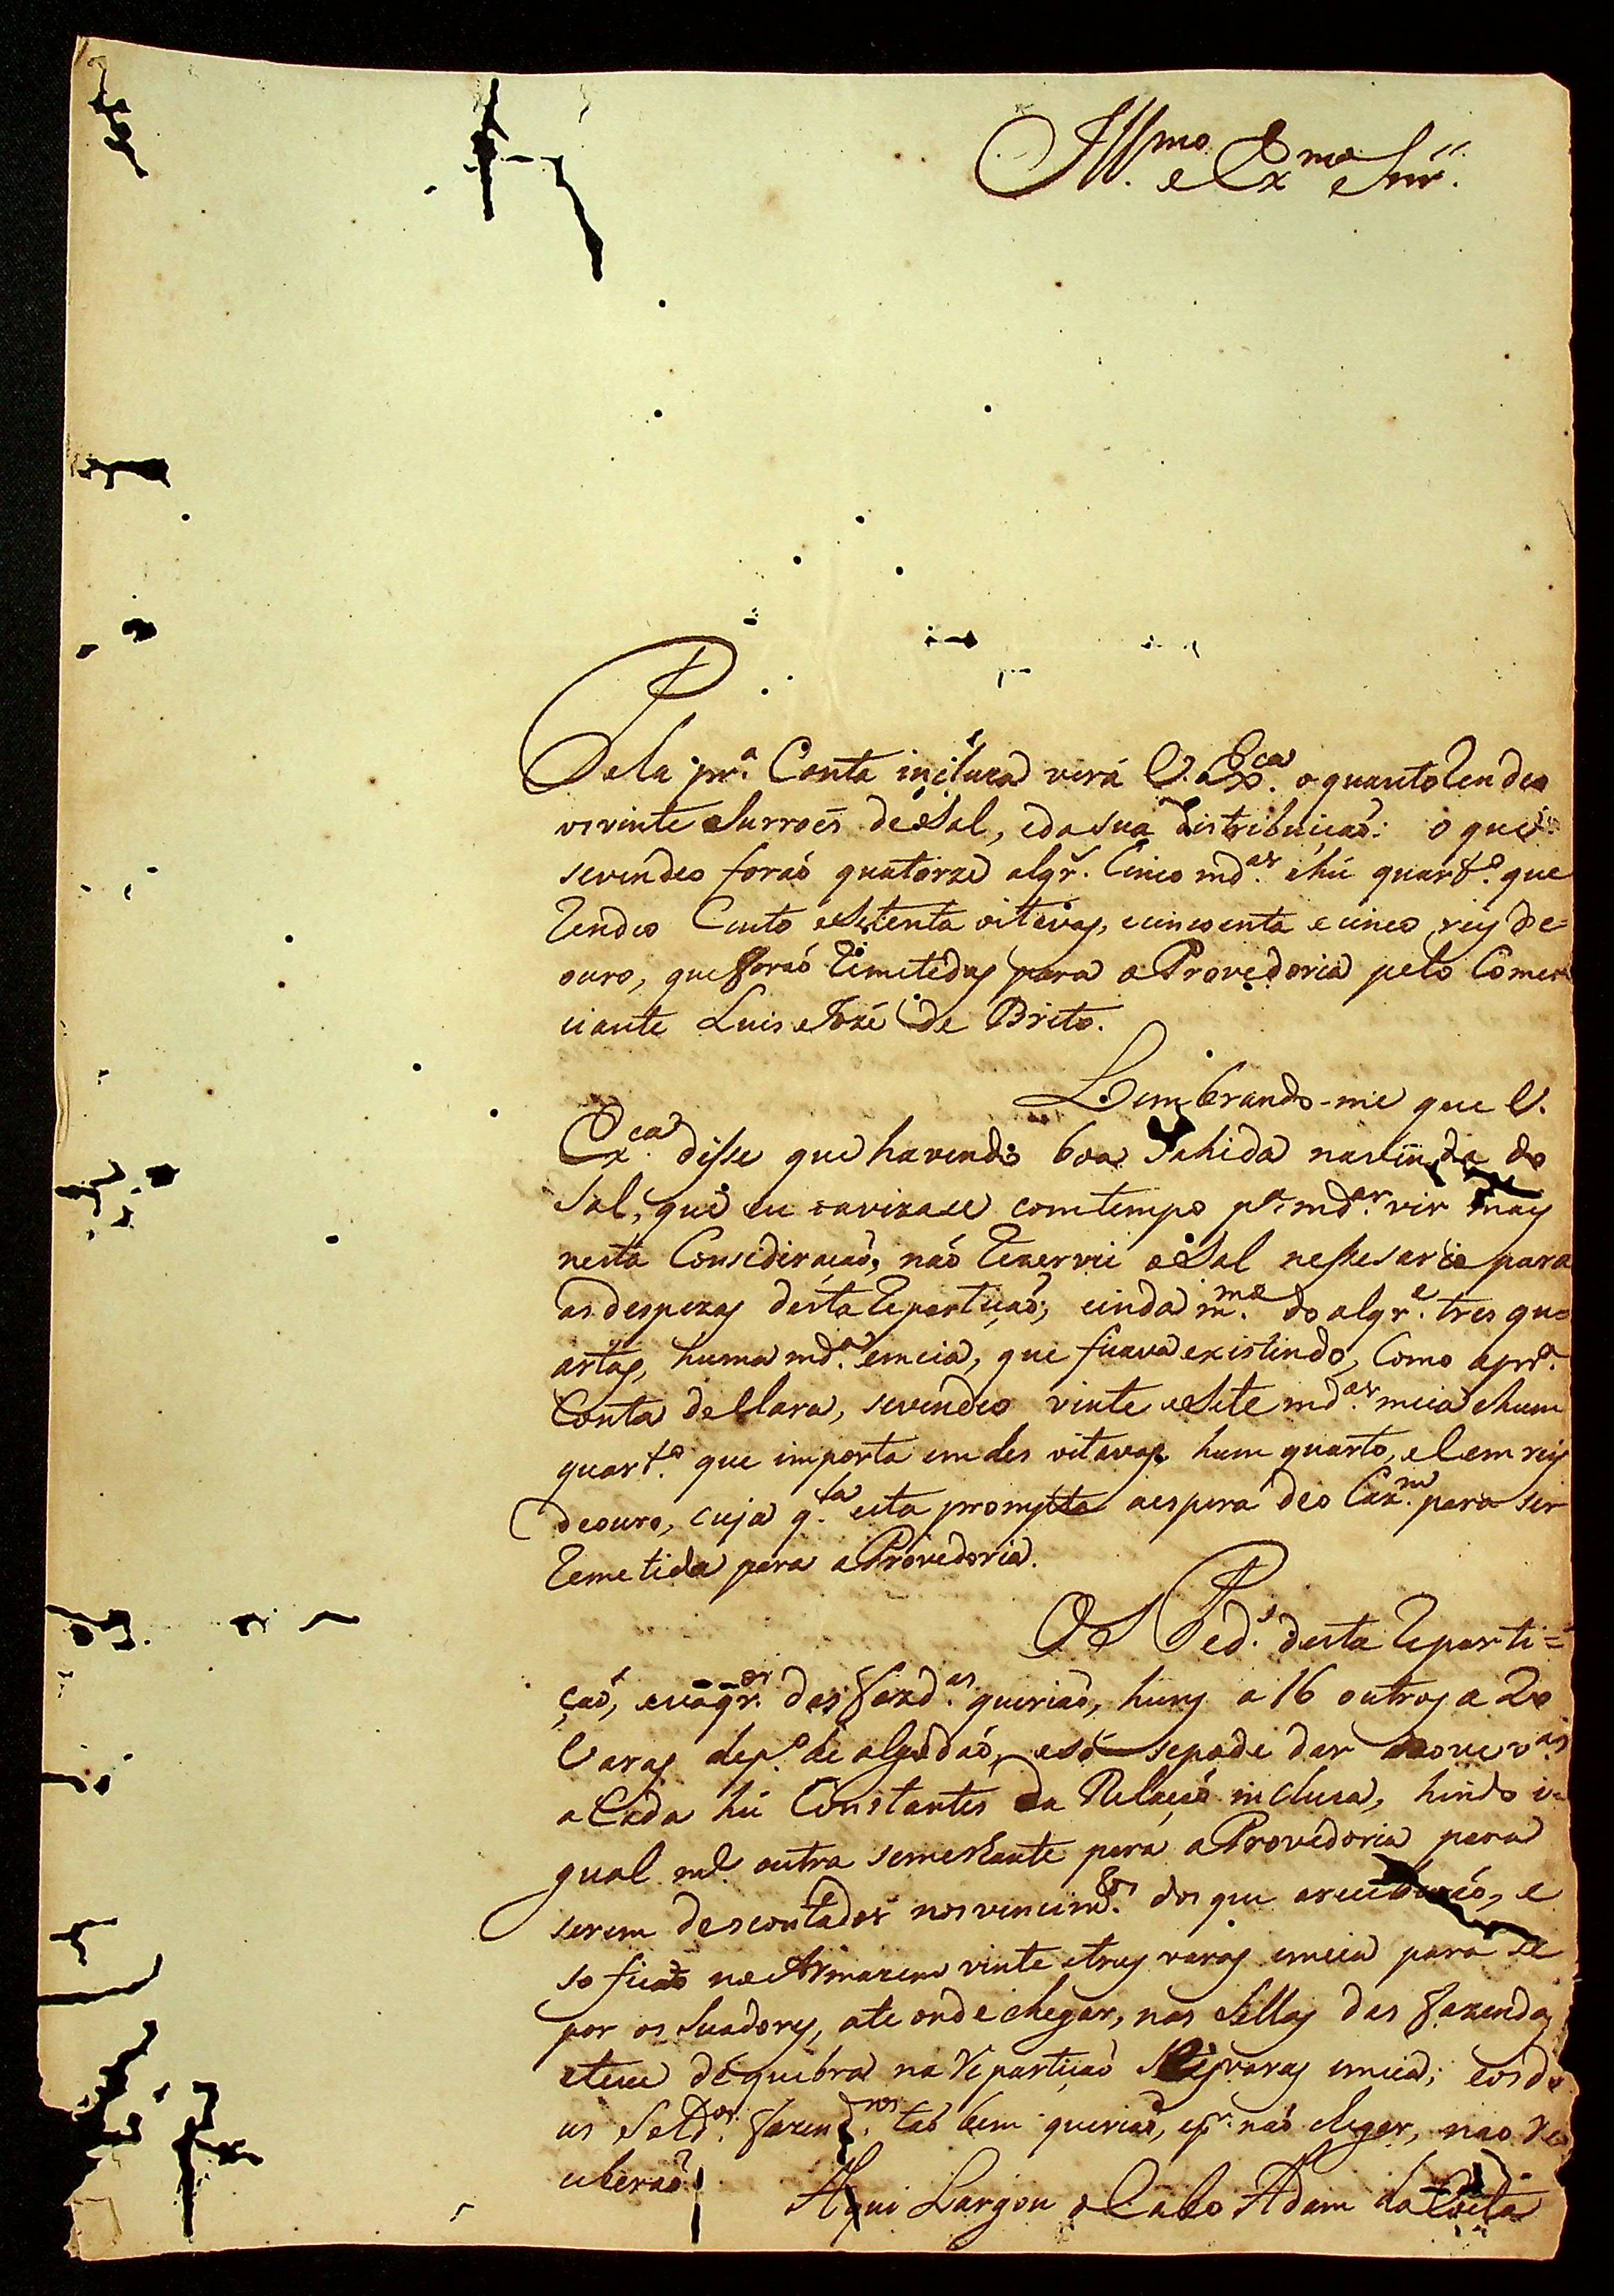 Illmo. e Exmo. Snr.
Pela pra. Conta incluza verá V. Exca. o quanto Rendeo
os vinte Surroẽs de Sal, e da sua distribuiçaõ: o que
se vendeo foraõ quatorze alqr. Cinco md.as e hũ quarto. que
Rendeo Cento e Setenta oitavas, e cincoenta e cinco reis de
ouro, que foraõ Remetidas para a Provedoria pelo Comer
ciante Luis Jozé de Brito.
Lembrando-me que V.
Exca. disse que havendo boa Sahida na venda do
Sal, que eu avizase com tempo pa. mdar. vir mais
nesta Consideraçaõ, naõ Rezervei o Sal nessesario para
as despezas desta Repartiçaõ; e inda m.mo do alqre. tres qu=
artas, huma mda. e meia, que ficava existindo, Como a pra.
Conta declara, se vendeo vinte e Sete md.as meia e hum
quarto. que importa em des oitavas hum quarto, e Cem reis
de ouro, cuja q.ta esta prompta a espera de o Cazm. para ser
Remetida para a Provedoria.
Os Ped.s desta Reparti=
çaõ, e vaqr.os das fazd.as queriaõ, huns a 16 outros a 20
Varas de p.o de algodaõ, e só se pode dar a nove v.as
a Cada hũ Constantes da Relaçaõ incluza, hindo i
gual md. outra semelhante para a Provedoria para
serem descontados nos vencim.tos dos que a receberaõ, e
so ficaõ no Armazem vinte e tres varas e meia para se
por os Suadores, ate onde chegar, nas Sellas das fazendas
e teve de quebra na repartiçaõ Seis varas e meia; e os do
us Sold.os fazend.ros taõ bem queriaõ, e pr. naõ chegar, naõ re
ceberaõ.
Aqui Largou o Cabo Adam da Costa